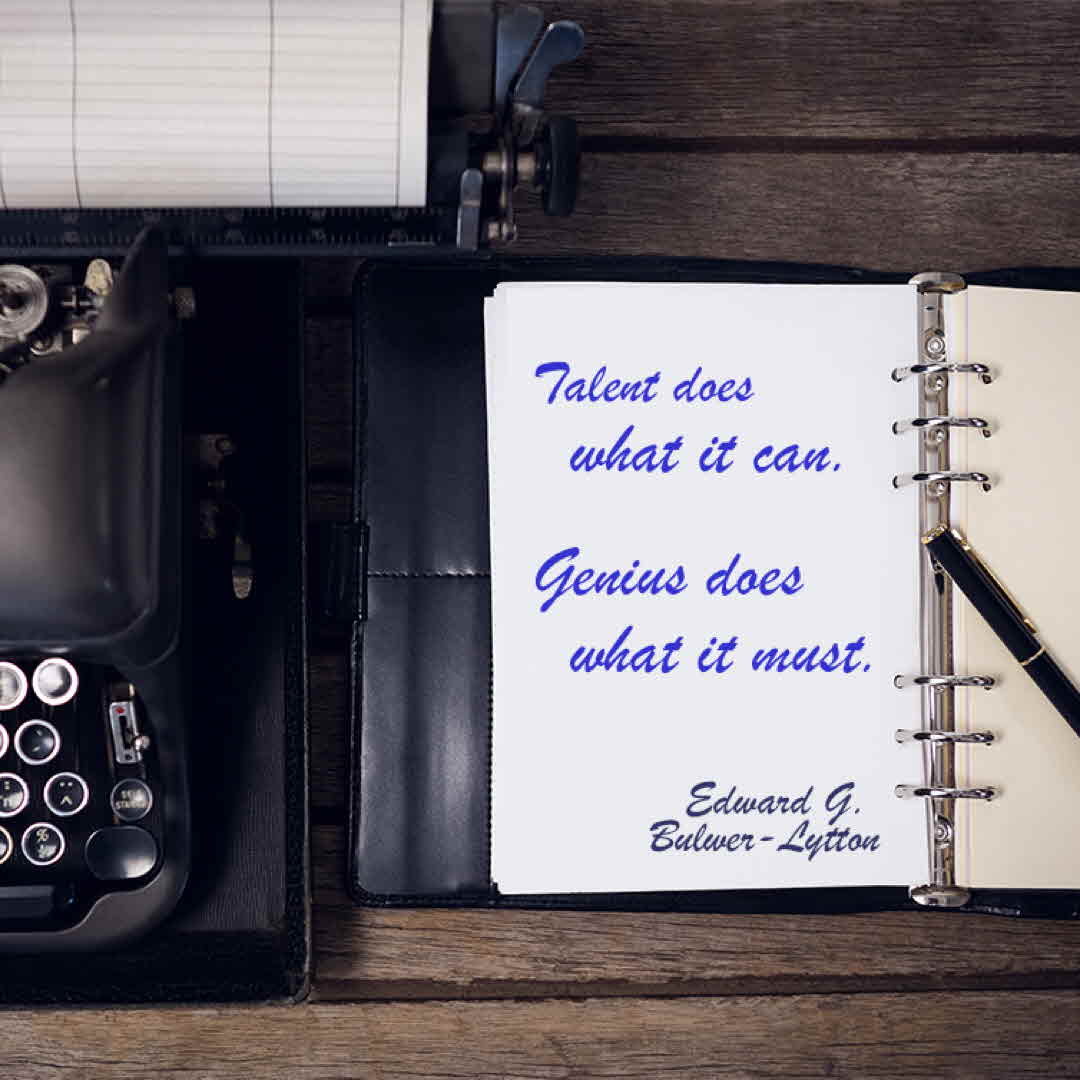 Talent does
what it can.
Genius does
what it must.
Edward G.
Bulwer-Lytton